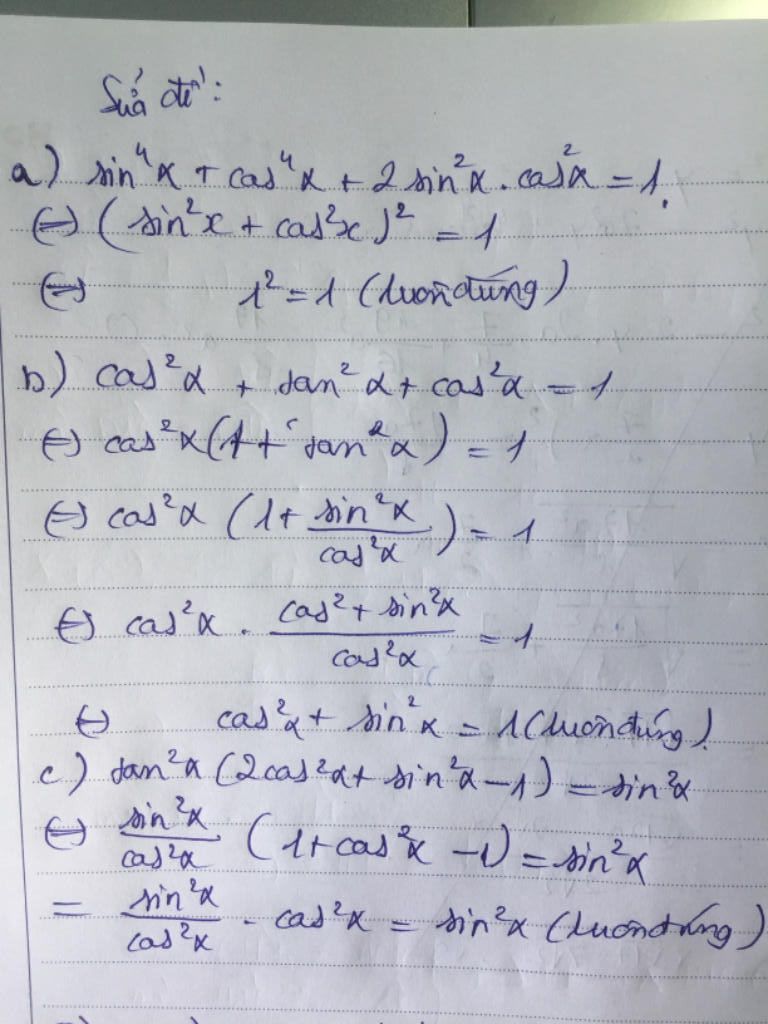 Sửa đề:
a) sin⁴α + cos⁴α + 2 sin²α . cos²α = 1.
⇔ (sin²x + cos²x)² = 1
⇔ 1² = 1 (luôn đúng)
b) cos²α + tan²α + cos²α = 1
⇔ cos²α (1 + tan²α) = 1
⇔ cos²α (1 + sin²α/cos²α) = 1
⇔ cos²α . (cos² + sin²α)/cos²α = 1
⇔ cos²α + sin²α = 1 (luôn đúng).
c) tan²α (2cos²α + sin²α − 1) = sin²α
⇔ sin²α/cos²α (1 + cos²α − 1) = sin²α
= sin²α/cos²α . cos²α = sin²α (luôn đúng)